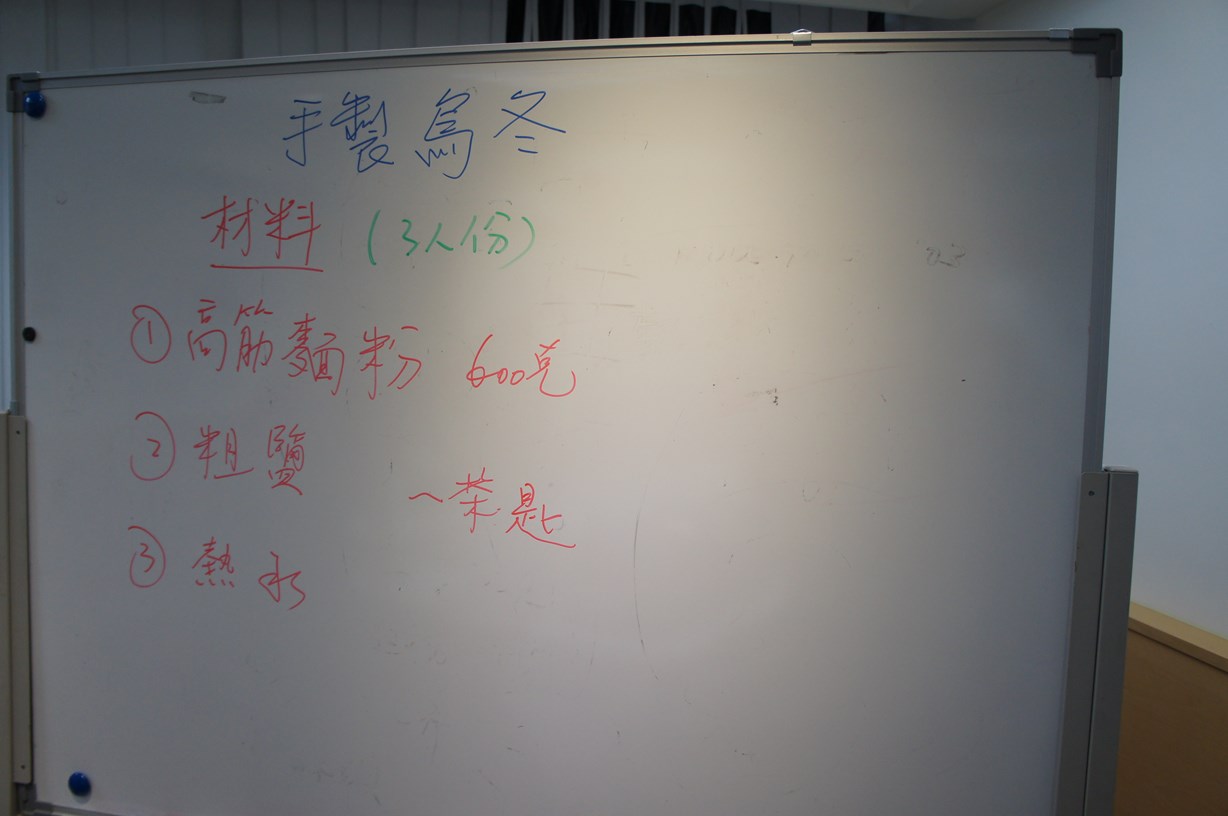 手製烏冬
材料 (3人份)
① 高筋麵粉 600克
② 粗鹽 一茶匙
③ 熱水